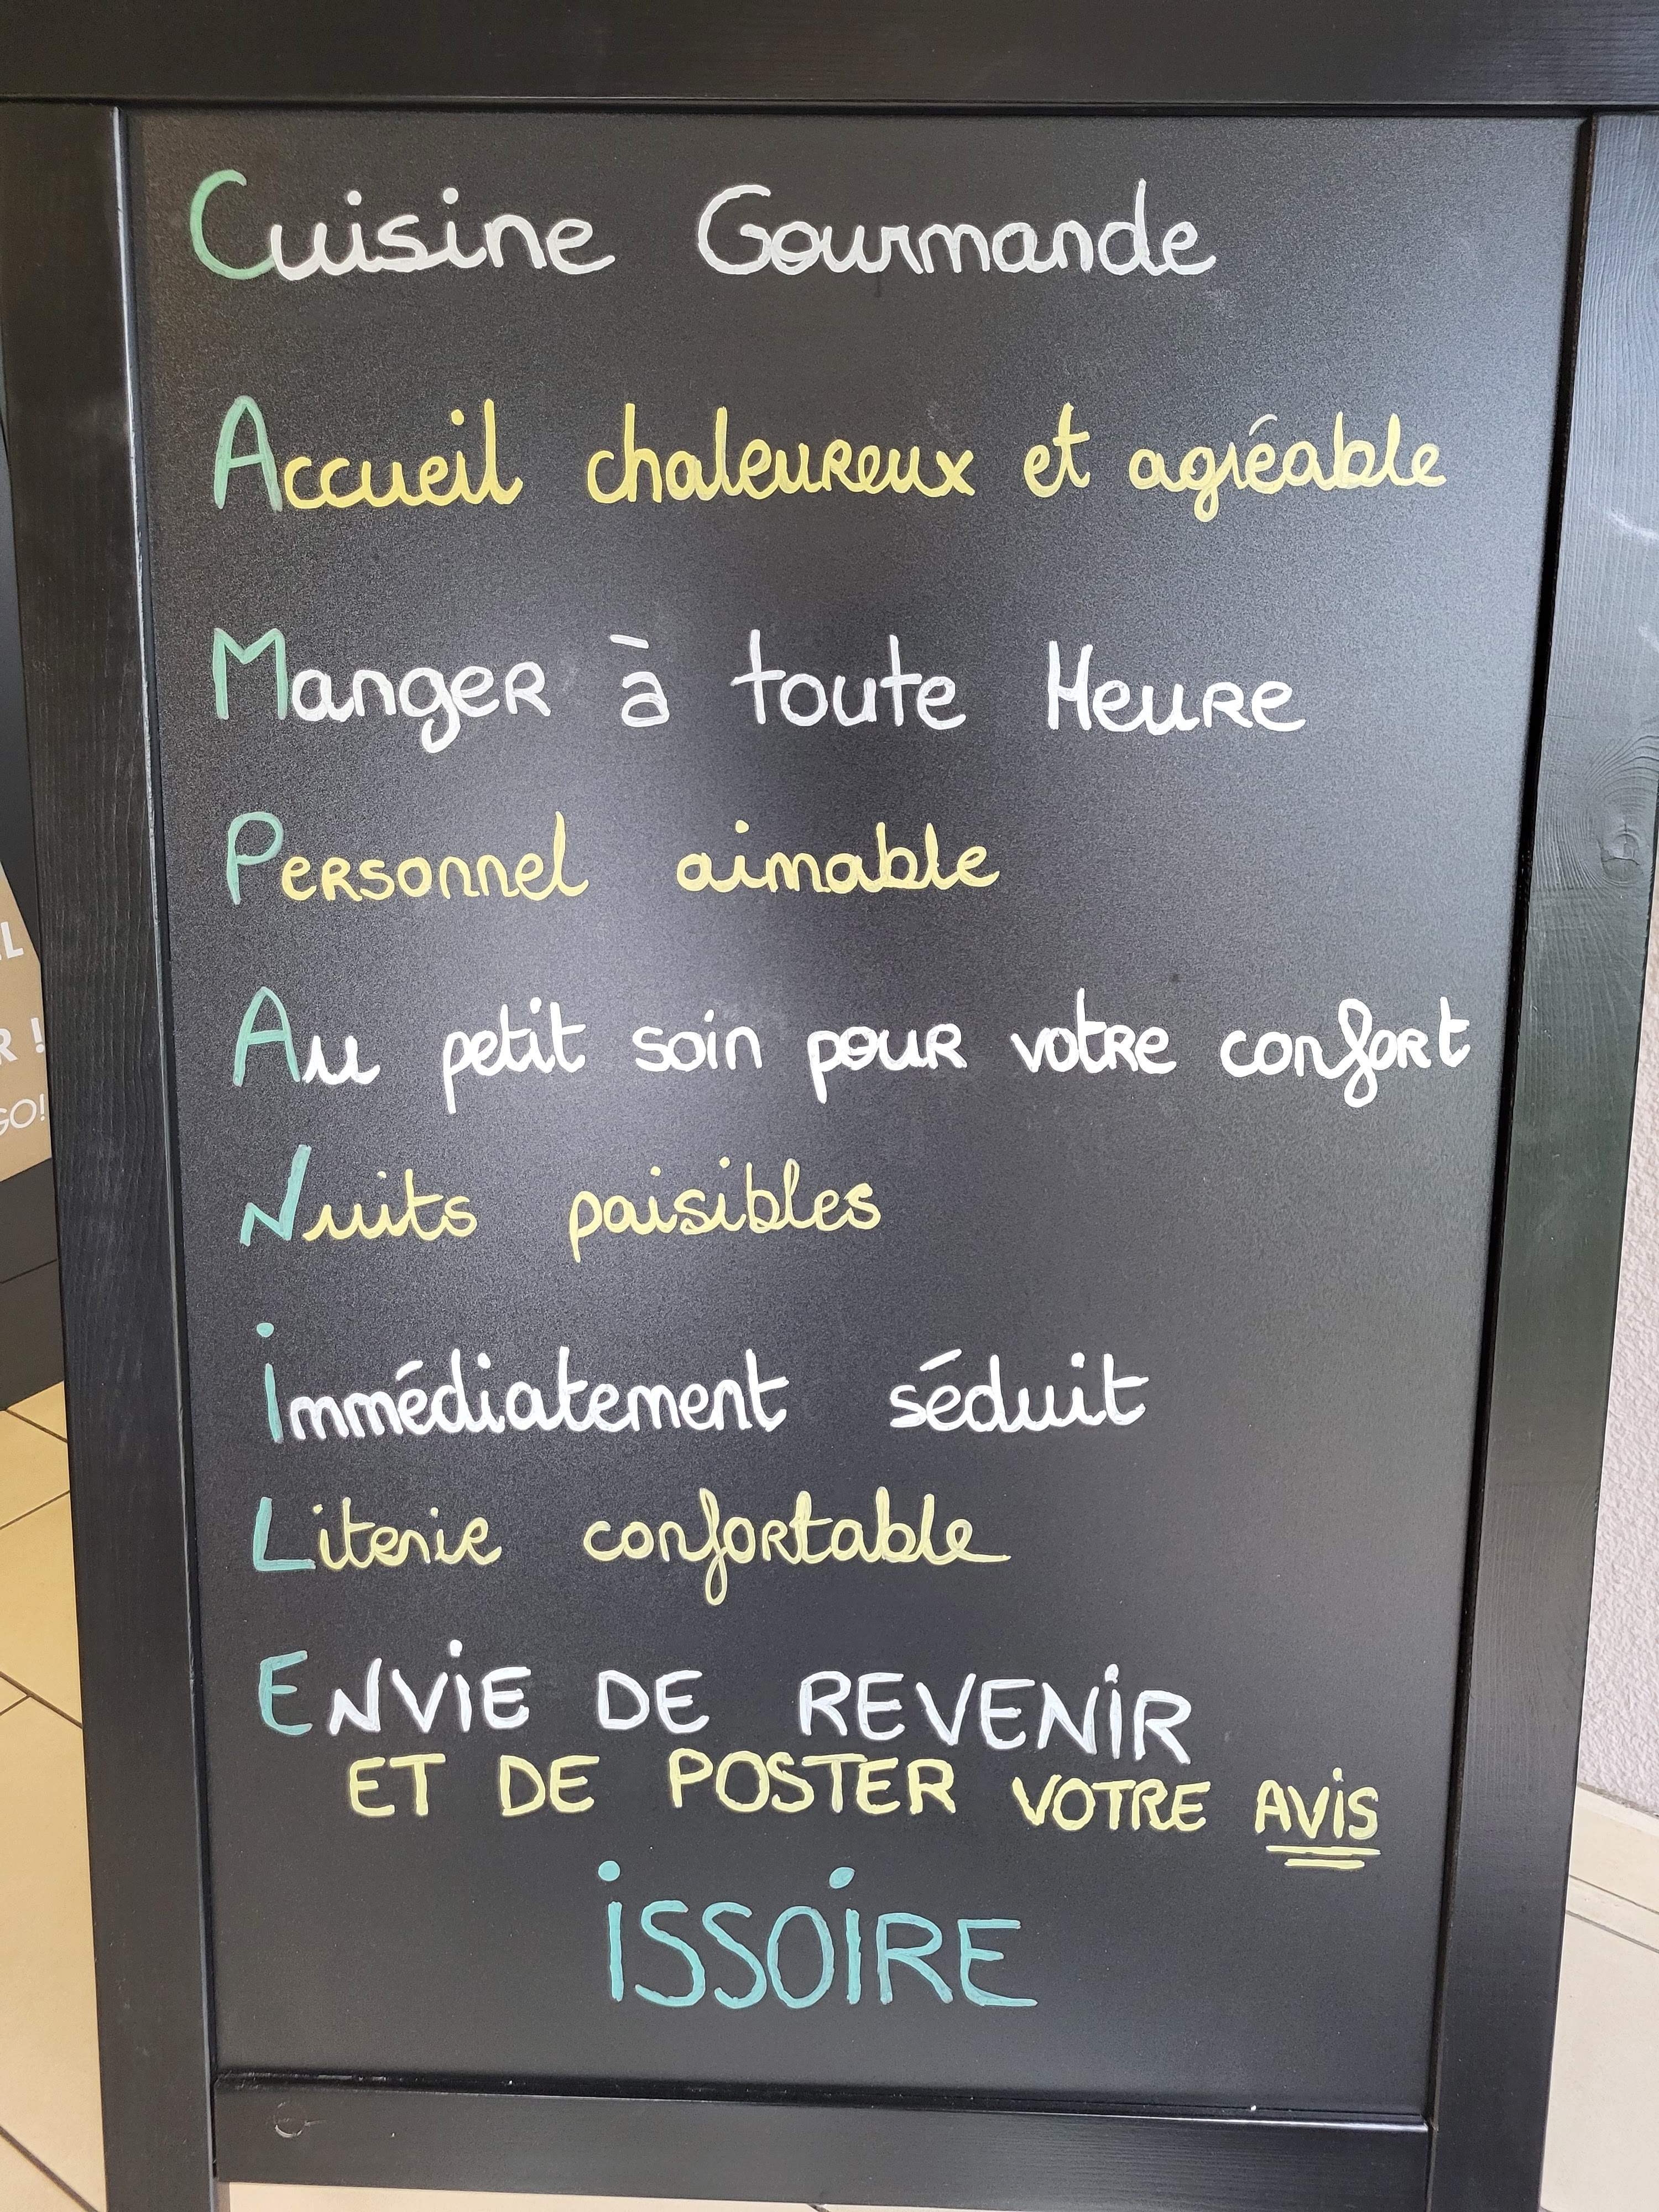 Cuisine Gourmande
Accueil chaleureux et agréable
Manger à toute Heure
Personnel aimable
Au petit soin pour votre confort
Nuits paisibles
Immédiatement séduit
Literie confortable
ENViE DE REVENiR
ET DE POSTER VOTRE AViS
iSSOiRE
L
R !
GO!